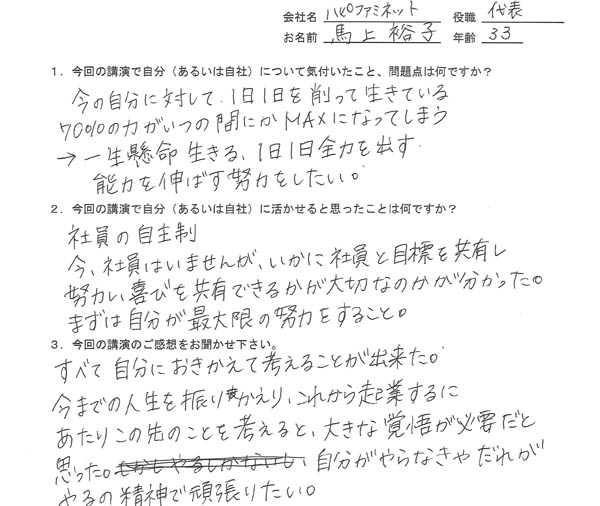 会社名 ハピファミネット 役職 代表
お名前 馬上裕子 年齢 33
1．今回の講演で自分（あるいは自社）について気付いたこと、問題点は何ですか？
今の自分に対して、1日1日を削って生きている
70%の力がいつの間にかMAXになってしまう
→一生懸命生きる、1日1日全力を出す。
能力を伸ばす努力をしたい。
2．今回の講演で自分（あるいは自社）に活かせると思ったことは何ですか？
社員の自主制
今、社員はいませんが、いかに社員と目標を共有し
努力し、喜びを共有できるかが大切なのかが分かった。
まずは自分が最大限の努力をすること。
3．今回の講演のご感想をお聞かせ下さい。
すべて自分におきかえて考えることが出来た。
今までの人生を振りかえり、これから起業するに
あたりこの先のことを考えると、大きな覚悟が必要だと
思った。しかしやるしかないし、自分がやらなきゃだれが
やるの精神で頑張りたい。